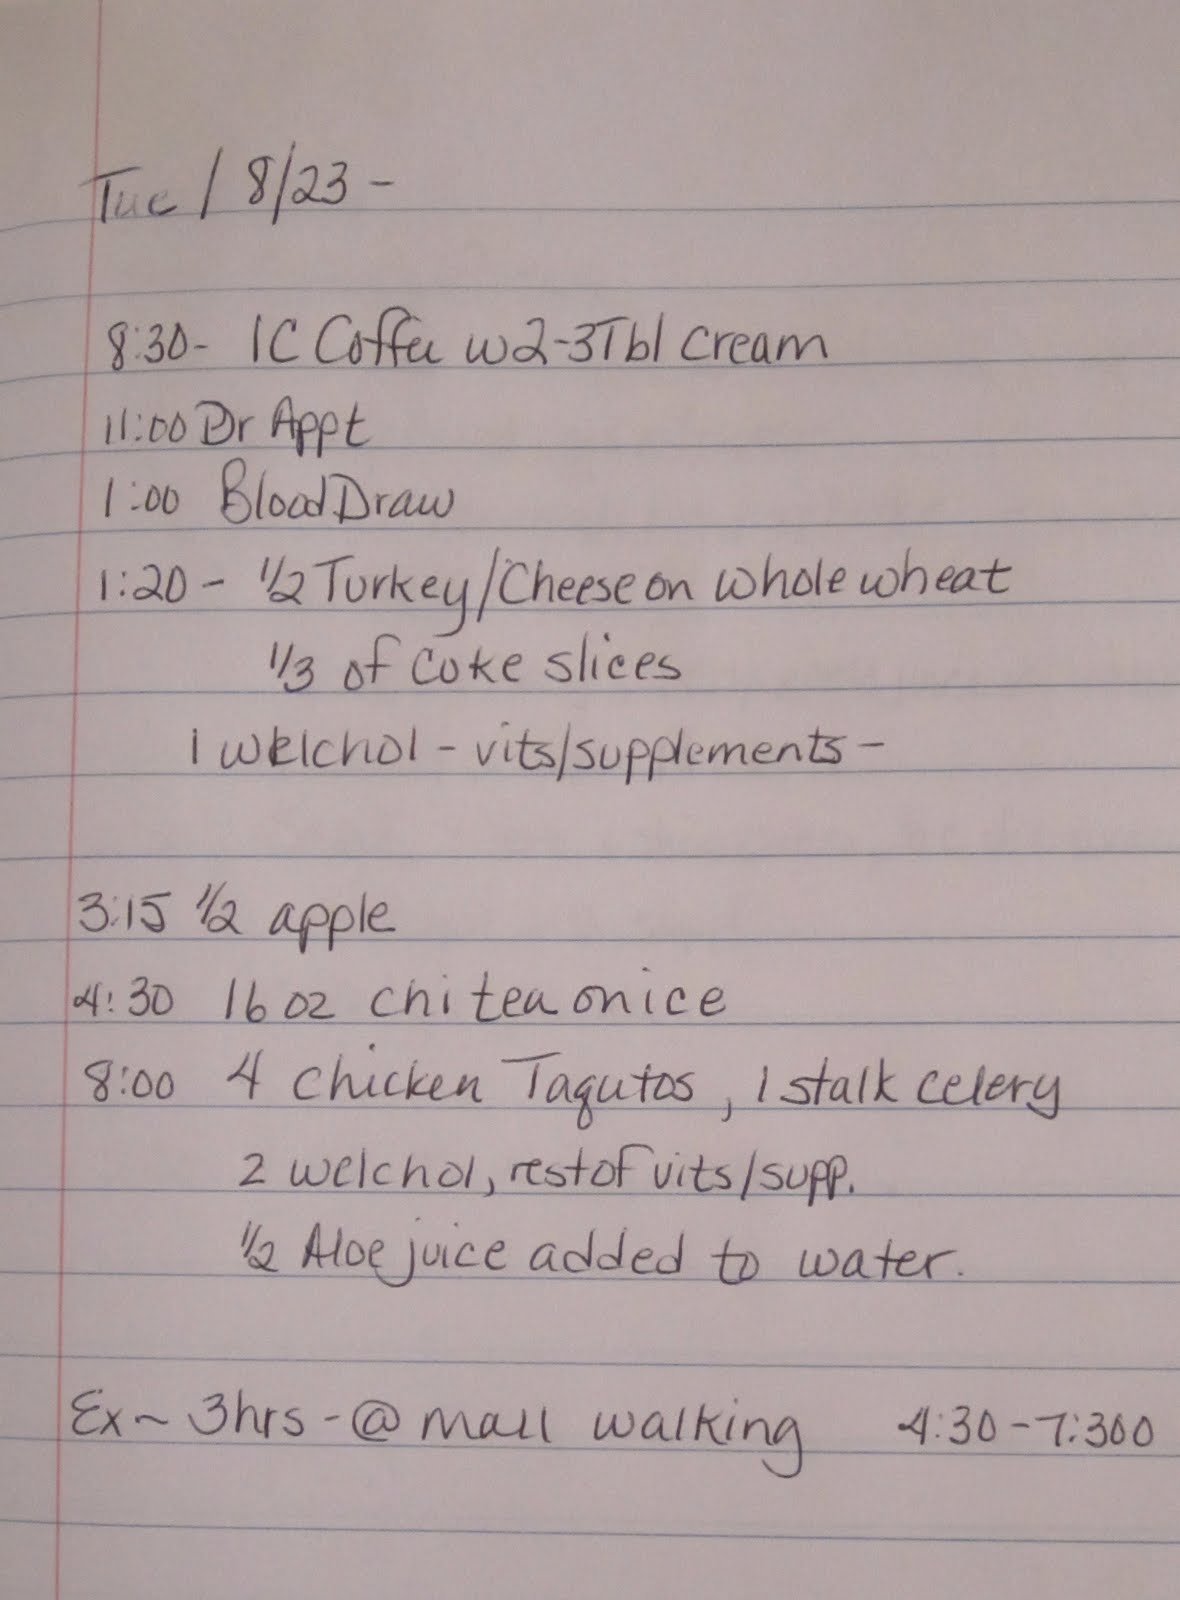 Tue / 8/23 -
8:30- 1C Coffee w 2-3Tbl cream
11:00 Dr Appt
1:00 Blood Draw
1:20 - 1/2 Turkey/Cheese on whole wheat
1/3 of coke slices
1 welchol - vits/supplements -
3:15 1/2 apple
4:30 16 oz chi tea on ice
8:00 4 chicken Taqutos, 1 stalk celery
2 welchol, rest of vits/supp.
1/2 Aloe juice added to water.
Ex ~ 3hrs - @ mall walking 4:30-7:300